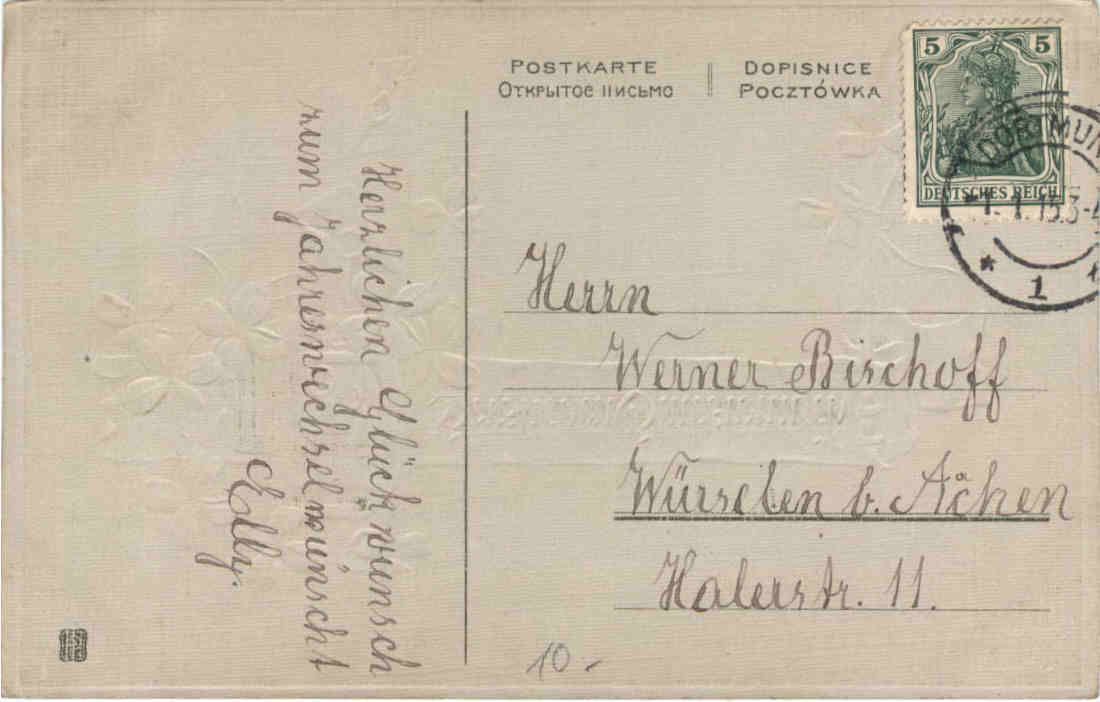 POSTKARTE
DOPISNICE
Открытое письмо
POCZTÓWKA
5 5
DEUTSCHES REICH
DORTMUN
1. 1. 15.3-4
* 1 *
Herzlichen Glückwunsch
zum Jahreswechsel wünscht
Elly.
Herrn
Werner Bischoff
Würselen b. Achen
11.
10-